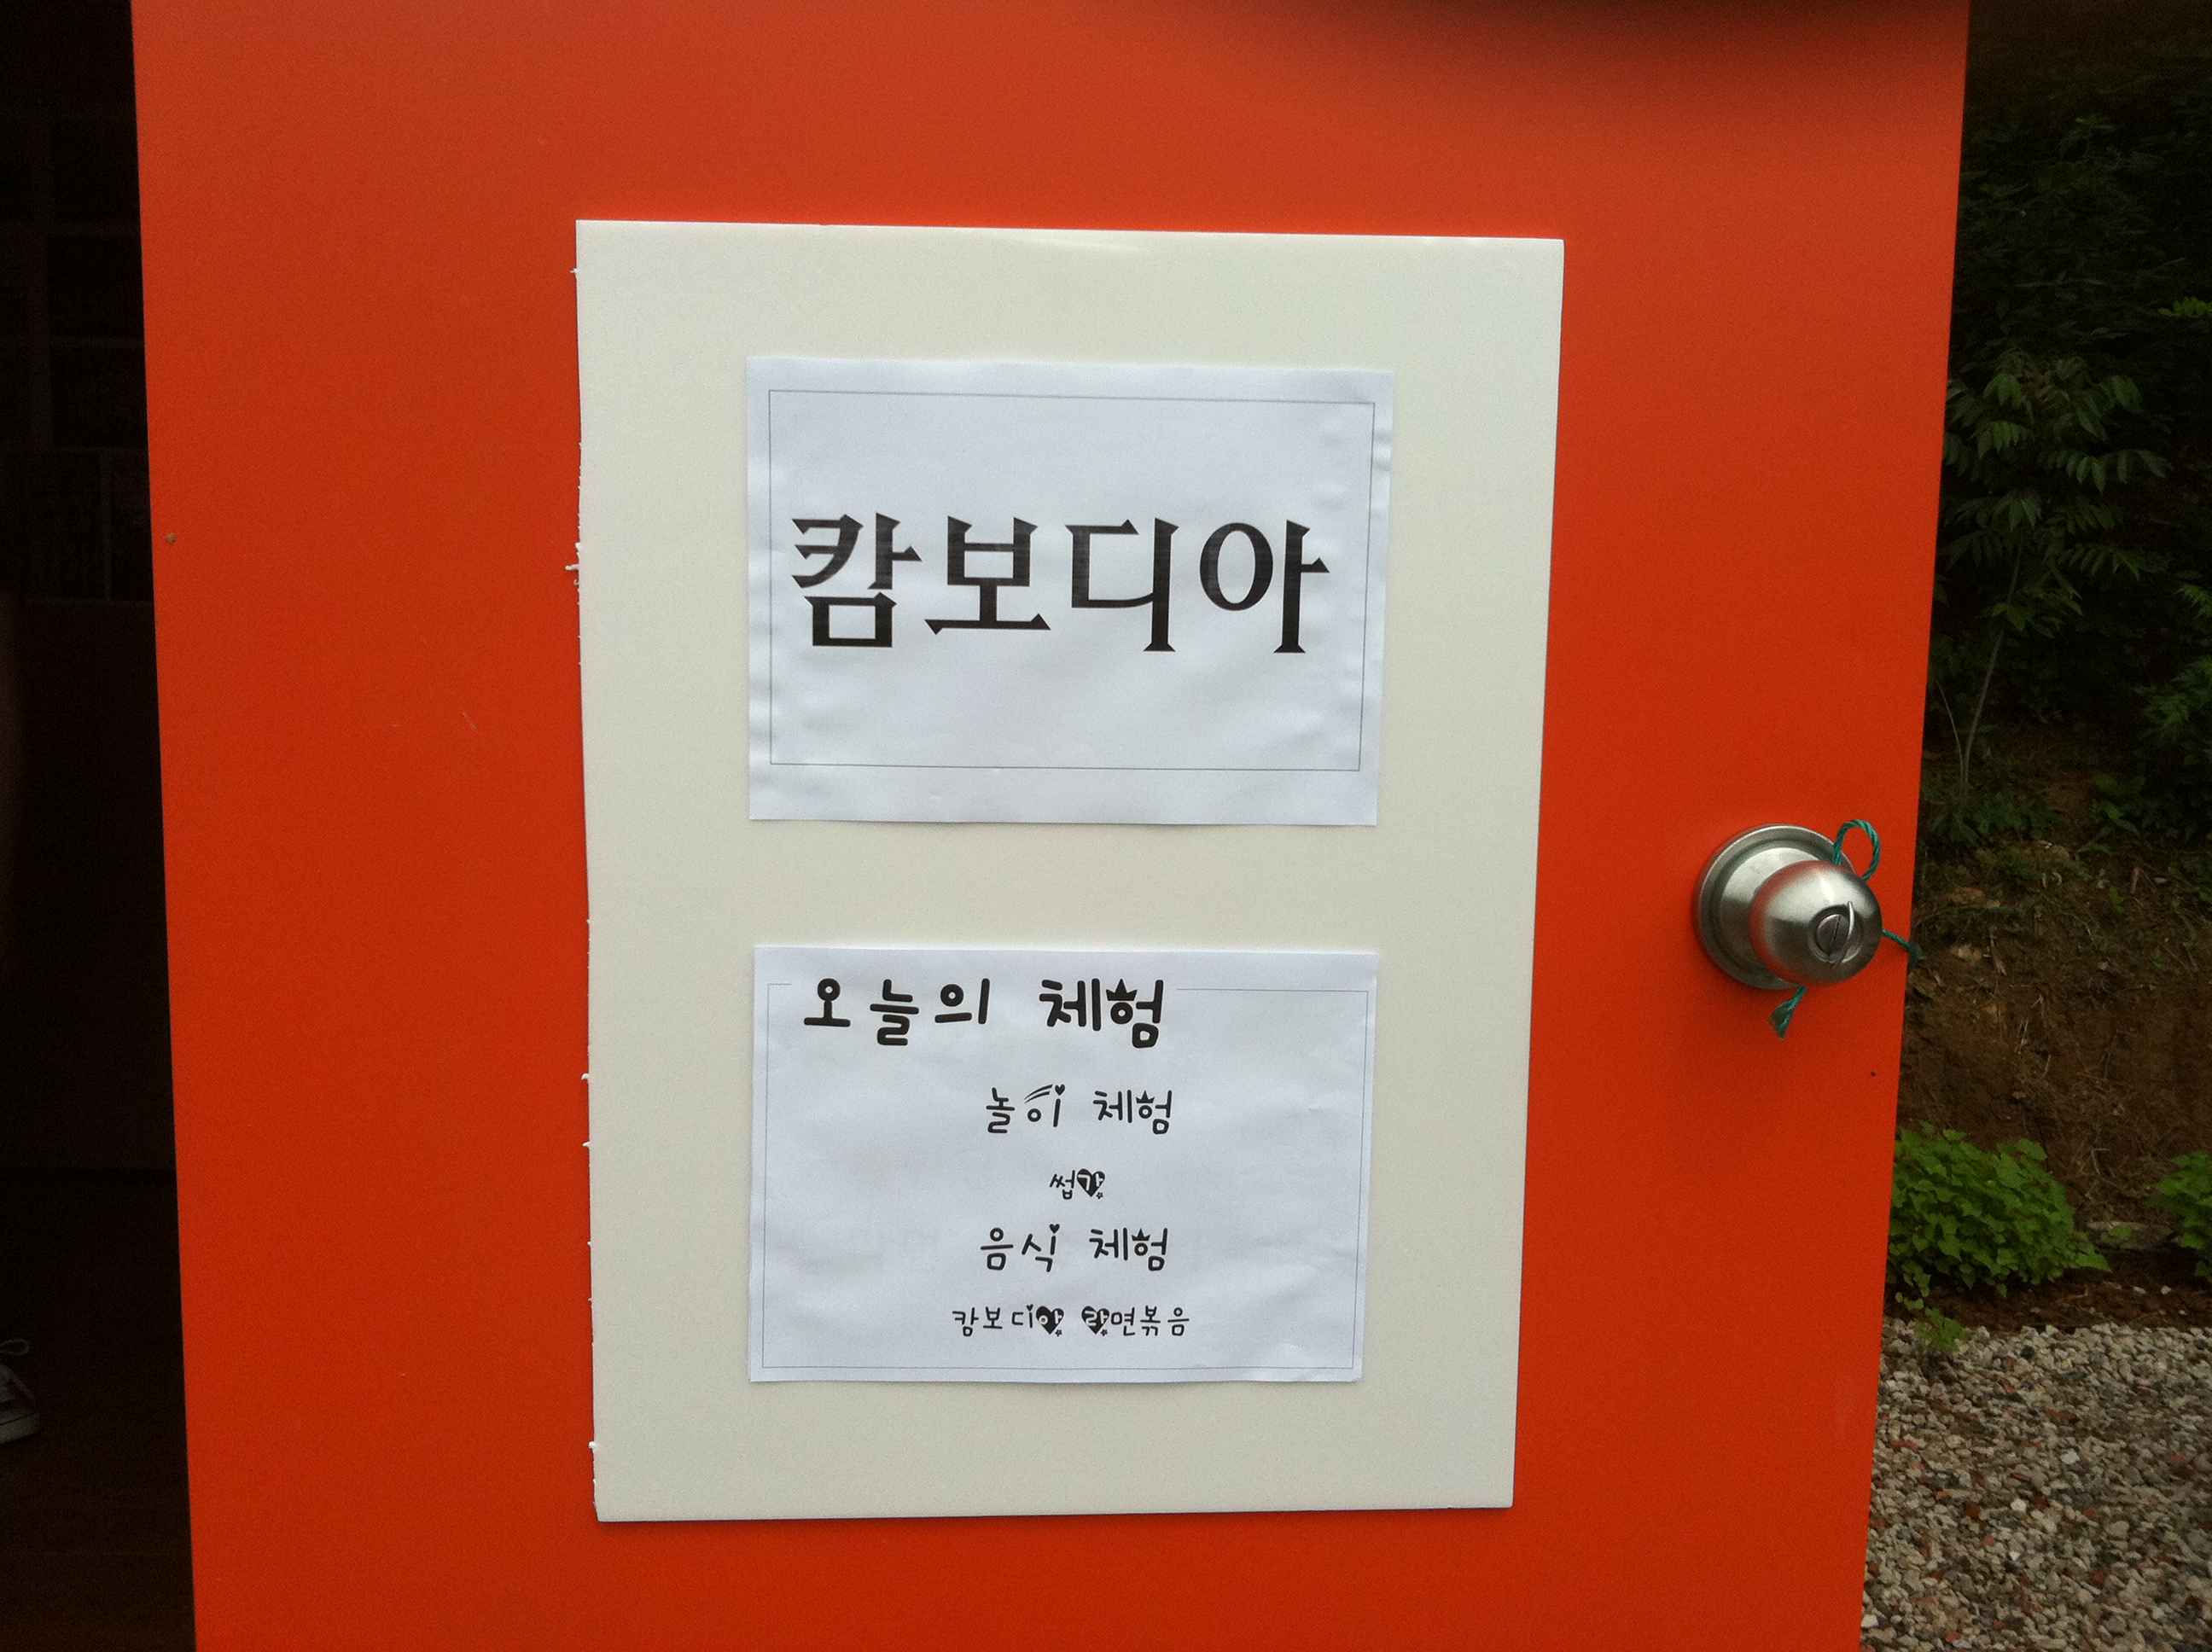 캄보디아
오늘의 체험
놀이 체험
썹가
음식 체험
캄보디아 라면볶음